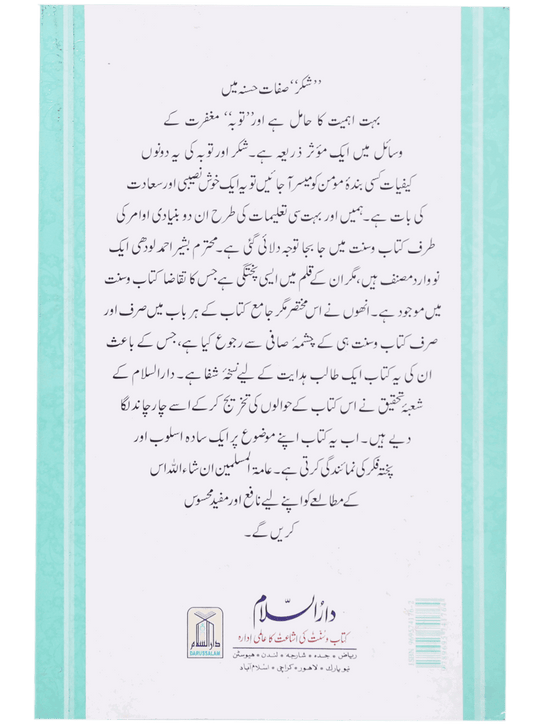 ’’شکر‘‘ صفات حسنہ میں
بہت اہمیت کا حامل ہے اور ’’توبہ‘‘ مغفرت کے
وسائل میں ایک مؤثر ذریعہ ہے۔ شکر اور توبہ کی یہ دونوں
کیفیات کسی بندۂ مومن کو میسر آ جائیں تو یہ ایک خوش نصیبی اور سعادت
کی بات ہے۔ ہمیں اور بہت سی تعلیمات کی طرح ان دو بنیادی اوامر کی
طرف کتاب وسنت میں جا بجا توجہ دلائی گئی ہے۔ محترم بشیر احمد لودھی ایک
نو وارد مصنف ہیں، مگر ان کے قلم میں ایسی پختگی ہے جس کا تقاضا کتاب وسنت
میں موجود ہے۔ انھوں نے اس مختصر مگر جامع کتاب کے ہر باب میں صرف اور
صرف کتاب وسنت ہی کے چشمۂ صافی سے رجوع کیا ہے، جس کے باعث
ان کی یہ کتاب ایک طالب ہدایت کے لیے نسخۂ شفا ہے۔ دارالسلام کے
شعبۂ تحقیق نے اس کتاب کے حوالوں کی تخریج کر کے اسے چار چاند لگا
دیے ہیں۔ اب یہ کتاب اپنے موضوع پر ایک سادہ اسلوب اور
پختہ فکر کی نمائندگی کرتی ہے۔ عامۃ المسلمین ان شاء اللہ اس
کے مطالعے کو اپنے لیے نافع اور مفید محسوس
کریں گے۔
دارالسلام
کتاب وسنت کی اشاعت کا عالمی ادارہ
ریاض • جدہ • شارجہ • لندن • ہیوسٹن
نیویارک • لاہور • کراچی • اسلام آباد
دارالسلام
DARUSSALAM